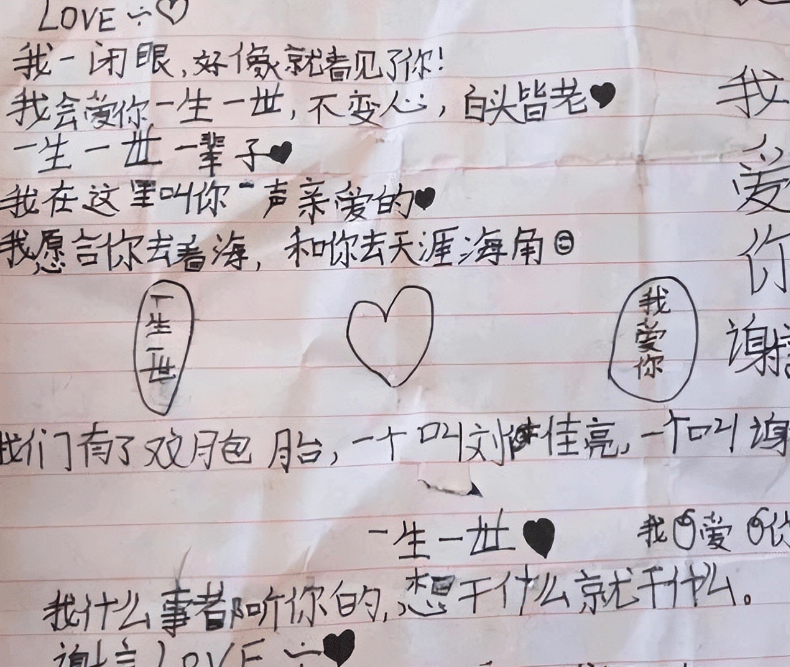 LOVE
我一闭眼,好像就看见了你!
我会爱你一生一世,不变心,白头皆老
一生一世一辈子
我在这里叫你一声亲爱的
我愿言你去看海,和你去天涯海角
一生一世
我爱你
我爱你谢
我们有了双月包胎,一个叫刘佳亮,一个叫谢
一生一世
我爱你
我什么事都听你的,想干什么就干什么。
LOVE